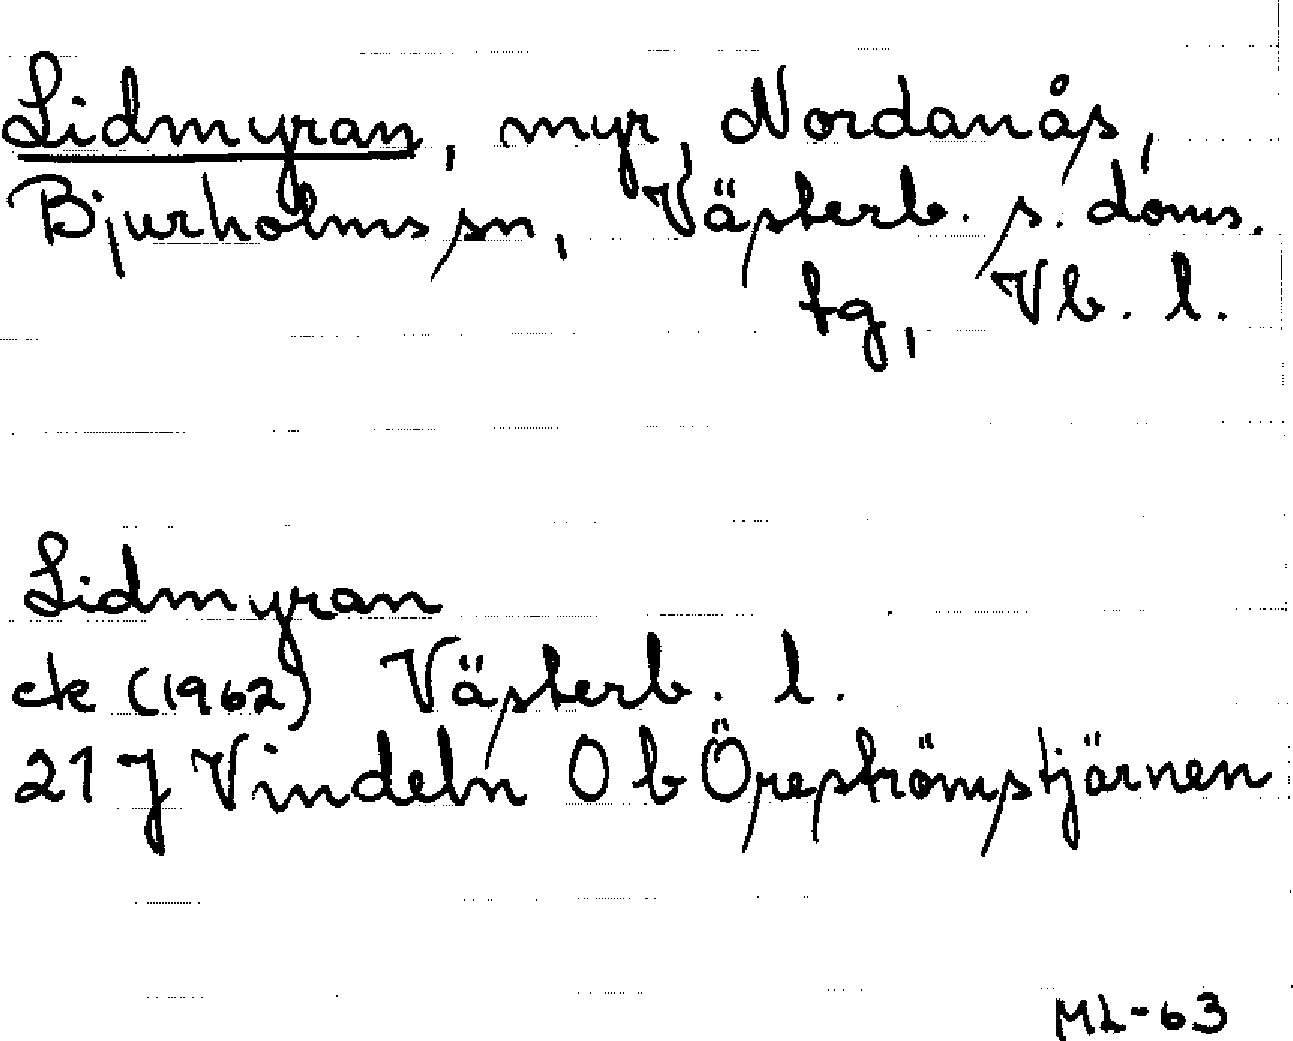 Lidmyran, myr, Nordanås,
Bjurholms sn, Västerb. s. doms.
tg, Vb. l.
Lidmyran
ek (1962) Västerb. l.
21 J Vindeln 0 b Öreströmstjärnen
ML-63